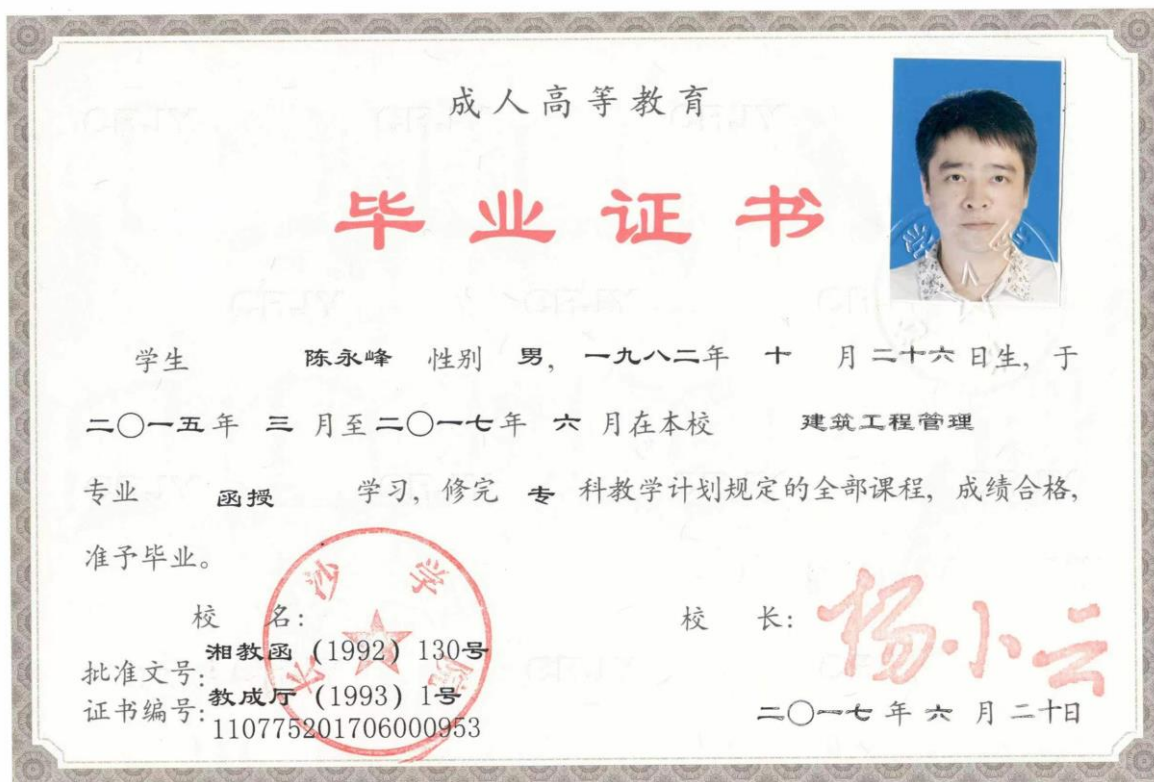 成人高等教育
毕业证书
学生 陈永峰 性别 男, 一九八二年 十 月 二十六 日生, 于
二〇一五年 三 月至二〇一七年 六 月在本校 建筑工程管理
专业 函授 学习, 修完 专 科教学计划规定的全部课程, 成绩合格,
准予毕业。
校 名: 校 长: 杨小云
批准文号: 湘教函 (1992) 130号
教成厅 (1993) 1号
证书编号: 110775201706000953
二〇一七 年 六 月 二十日
长沙学院